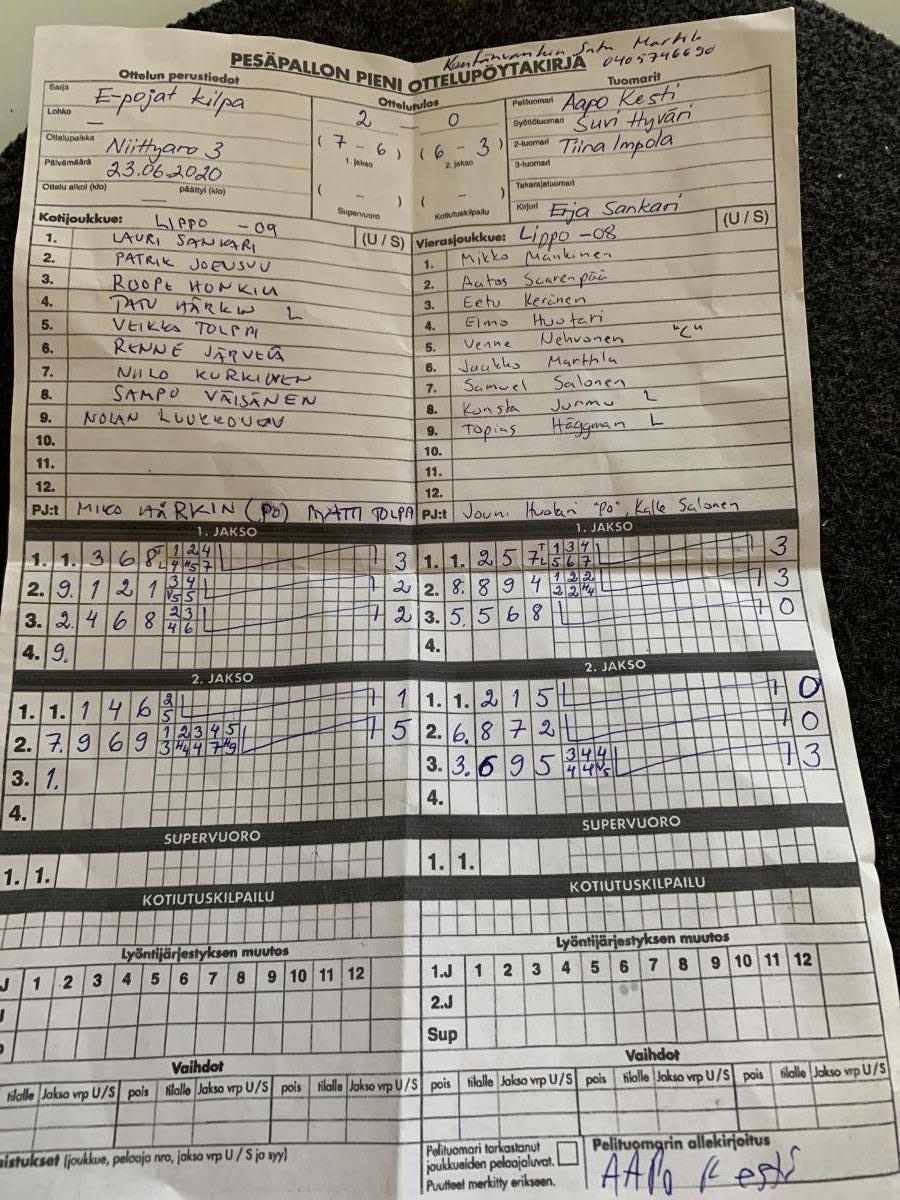 PESÄPALLON PIENI OTTELUPÖYTÄKIRJA
Martila
0405746690
Ottelun perustiedot
Sarja E-pojat kilpa
Lohko —
Ottelupaikka Niittyaro 3
Päivämäärä 23.06.2020
Ottelu alkoi (klo) — päättyi (klo)
Ottelutulos
2 — 0
(7 - 6) (6 - 3)
1. jakso 2. jakso
( - ) ( - )
Supervuoro Kotiutuskilpailu
Tuomarit
Pelituomari Aapo Kesti
Syöttötuomari Suvi Hyväri
2-tuomari Tiina Impola
3-tuomari
Takarajatuomari
Kirjuri Erja Sankari
Kotijoukkue: LIPPO -09 (U / S)
1. LAURI SANKARI
2. PATRIK JOENSUU
3. ROOPE HONKIN
4. TATU HÄRKIN L
5. VEIKKA TOLPA
6. RENNE JÄRVELÄ
7. NIILO KURKINEN
8. SAMPO VÄISÄNEN
9. NOLAN LUUKKONEN
10.
11.
12.
PJ:t MIKO HÄRKIN (PO) MATTI TOLPA
Vierasjoukkue: Lippo -08 (U / S)
1. Mikko Mankinen
2. Aatos Saarenpää
3. Eetu Keränen
4. Elmo Huotari
5. Venne Nehvonen "C"
6. Jaakko Marttila
7. Samuel Salonen
8. Konsta Jurmu L
9. Topias Häggman L
10.
11.
12.
PJ:t Jouni Huotari "Po", Kalle Salonen
1. JAKSO
1. 1. 3 6 8 1 2 4 3
2. 9. 1 2 1 3 4 2
3. 2. 4 6 8 2 3 2
4 6
4. 9.
2. JAKSO
1. 1. 1 4 6 2 1
5
2. 7. 9 6 9 1 2 3 4 5 5
3. 1.
4.
SUPERVUORO
1. 1.
KOTIUTUSKILPAILU
Lyöntijärjestyksen muutos
J 1 2 3 4 5 6 7 8 9 10 11 12
Vaihdot
tilalle Jakso vrp U/S pois tilalle Jakso vrp U/S pois tilalle Jakso vrp U/S
istukset (joukkue, pelaaja nro, jakso vrp U / S ja syy)
1. JAKSO
1. 1. 2 5 7 1 3 4 3
5 6 7
2. 8. 8 9 4 1 2 2 3
3. 5. 5 6 8 0
4.
2. JAKSO
1. 1. 2 1 5 0
2. 6. 8 7 2 0
3. 3. 6 9 5 3 4 4 3
4.
SUPERVUORO
1. 1.
KOTIUTUSKILPAILU
Lyöntijärjestyksen muutos
1.J 1 2 3 4 5 6 7 8 9 10 11 12
2.J
Sup
Vaihdot
pois tilalle Jakso vrp U/S pois tilalle Jakso vrp U/S pois tilalle Jakso vrp U/S
Pelituomari tarkastanut
joukkueiden pelaajaluvat.
Puutteet merkitty erikseen.
Pelituomarin allekirjoitus
AAPO Kesti